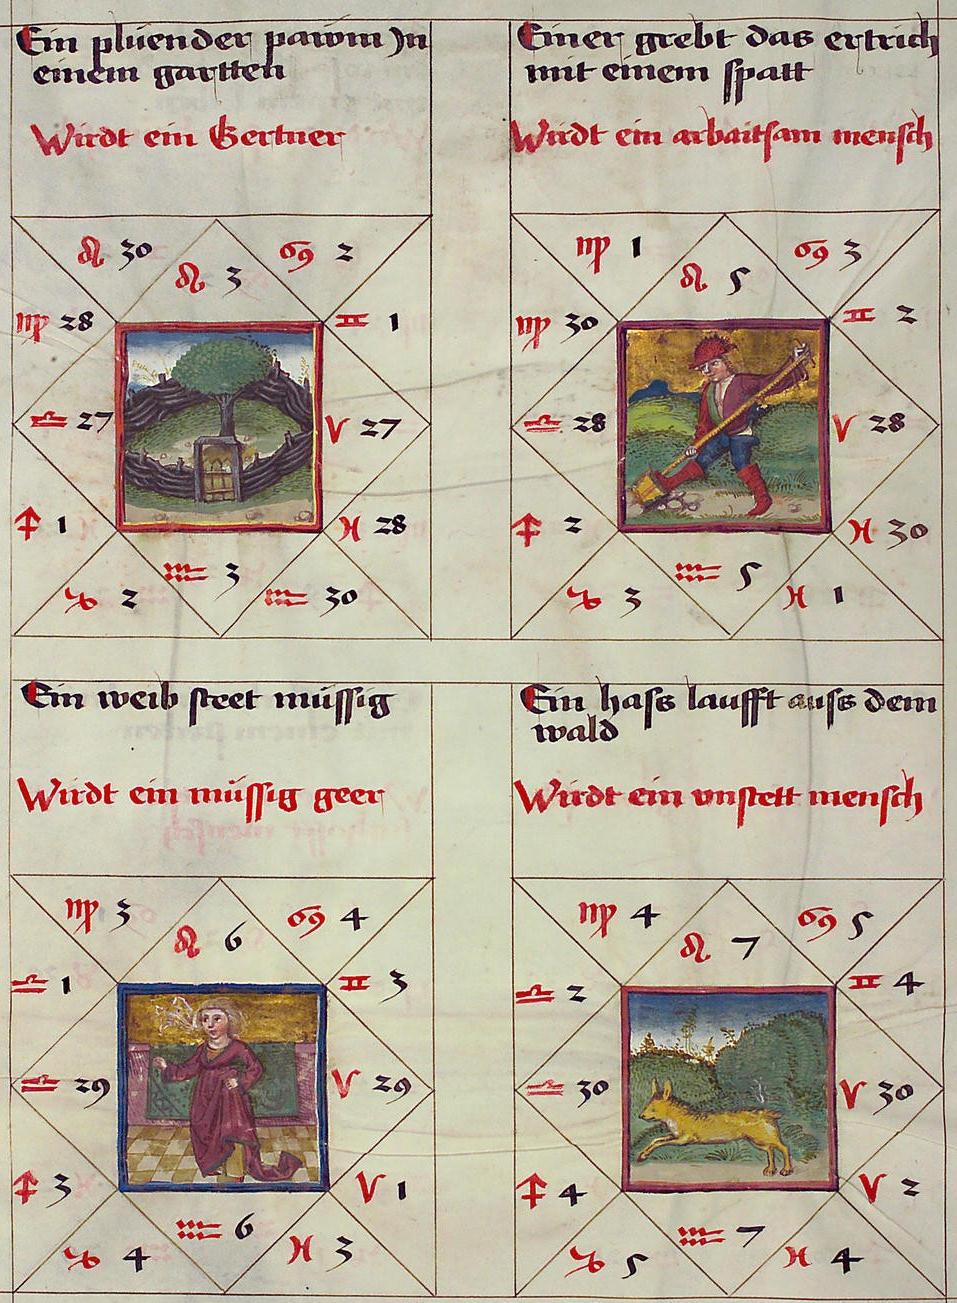 Ein plüender pawm Jn
einem gartten
Wirdt ein Gertner
♌ 30
♌ 3
♋ 2
♍ 28
♊ 1
♎ 27
♈ 27
♐ 1
♓ 28
♑ 2
♒ 3
♒ 30
Einer grebt das ertrich
mit einem spatt
Wirdt ein arbaitsam mensch
♍ 1
♌ 5
♋ 3
♍ 30
♊ 2
♎ 28
♈ 28
♐ 2
♓ 30
♑ 3
♒ 5
♓ 1
Ein weib steet müssig
Wirdt ein müssig geer
♍ 3
♌ 6
♋ 4
♎ 1
♊ 3
♎ 29
♈ 29
♐ 3
♈ 1
♑ 4
♒ 6
♓ 3
Ein hass laufft auss dem
wald
Wirdt ein vnstett mensch
♍ 4
♌ 7
♋ 5
♎ 2
♊ 4
♎ 30
♈ 30
♐ 4
♈ 2
♑ 5
♒ 7
♓ 4